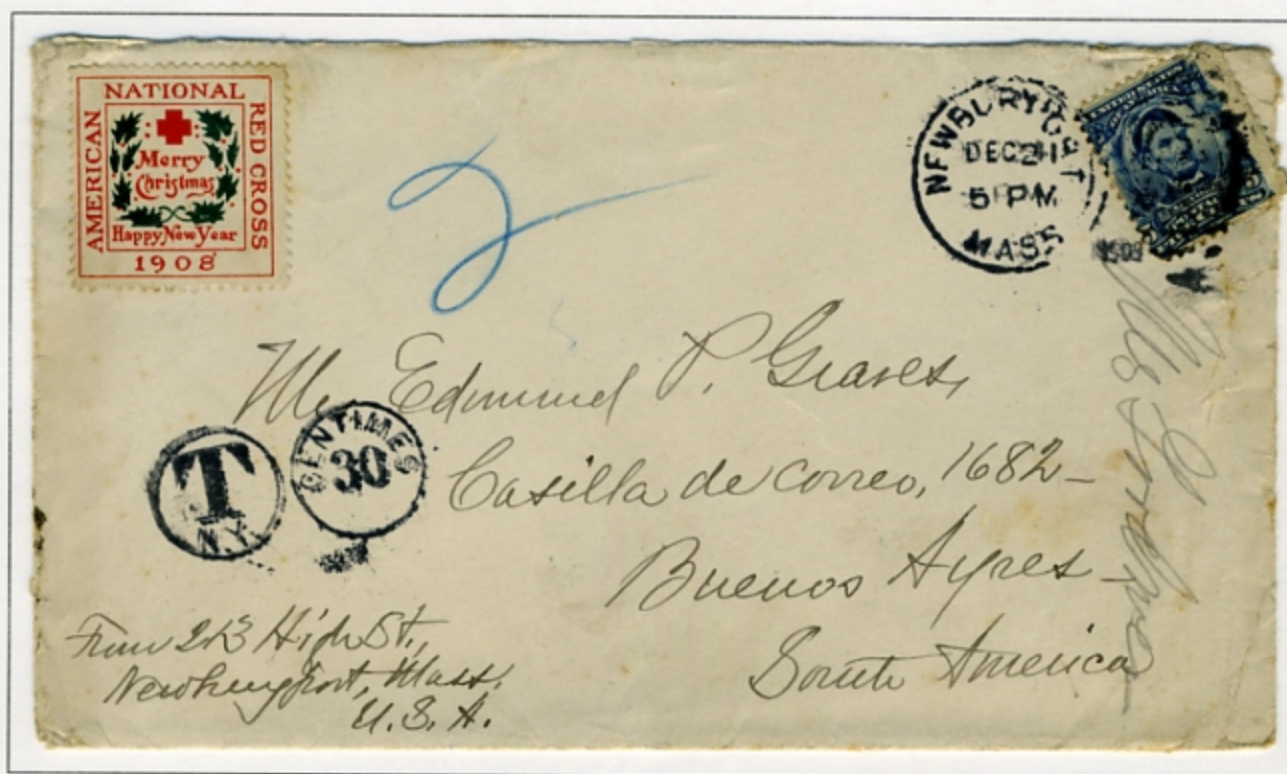 AMERICAN
NATIONAL
RED CROSS
Merry
Christmas
Happy New Year
1908
NEWBURYPORT
DEC 21
5 PM
MASS
1908
2
Mr Edmund P. Graves,
Casilla de correo, 1682-
Buenos Ayres-
South America
T
N.Y.
CENTIMES
30
From 213 High St.,
Newburyport, Mass.
U.S.A.